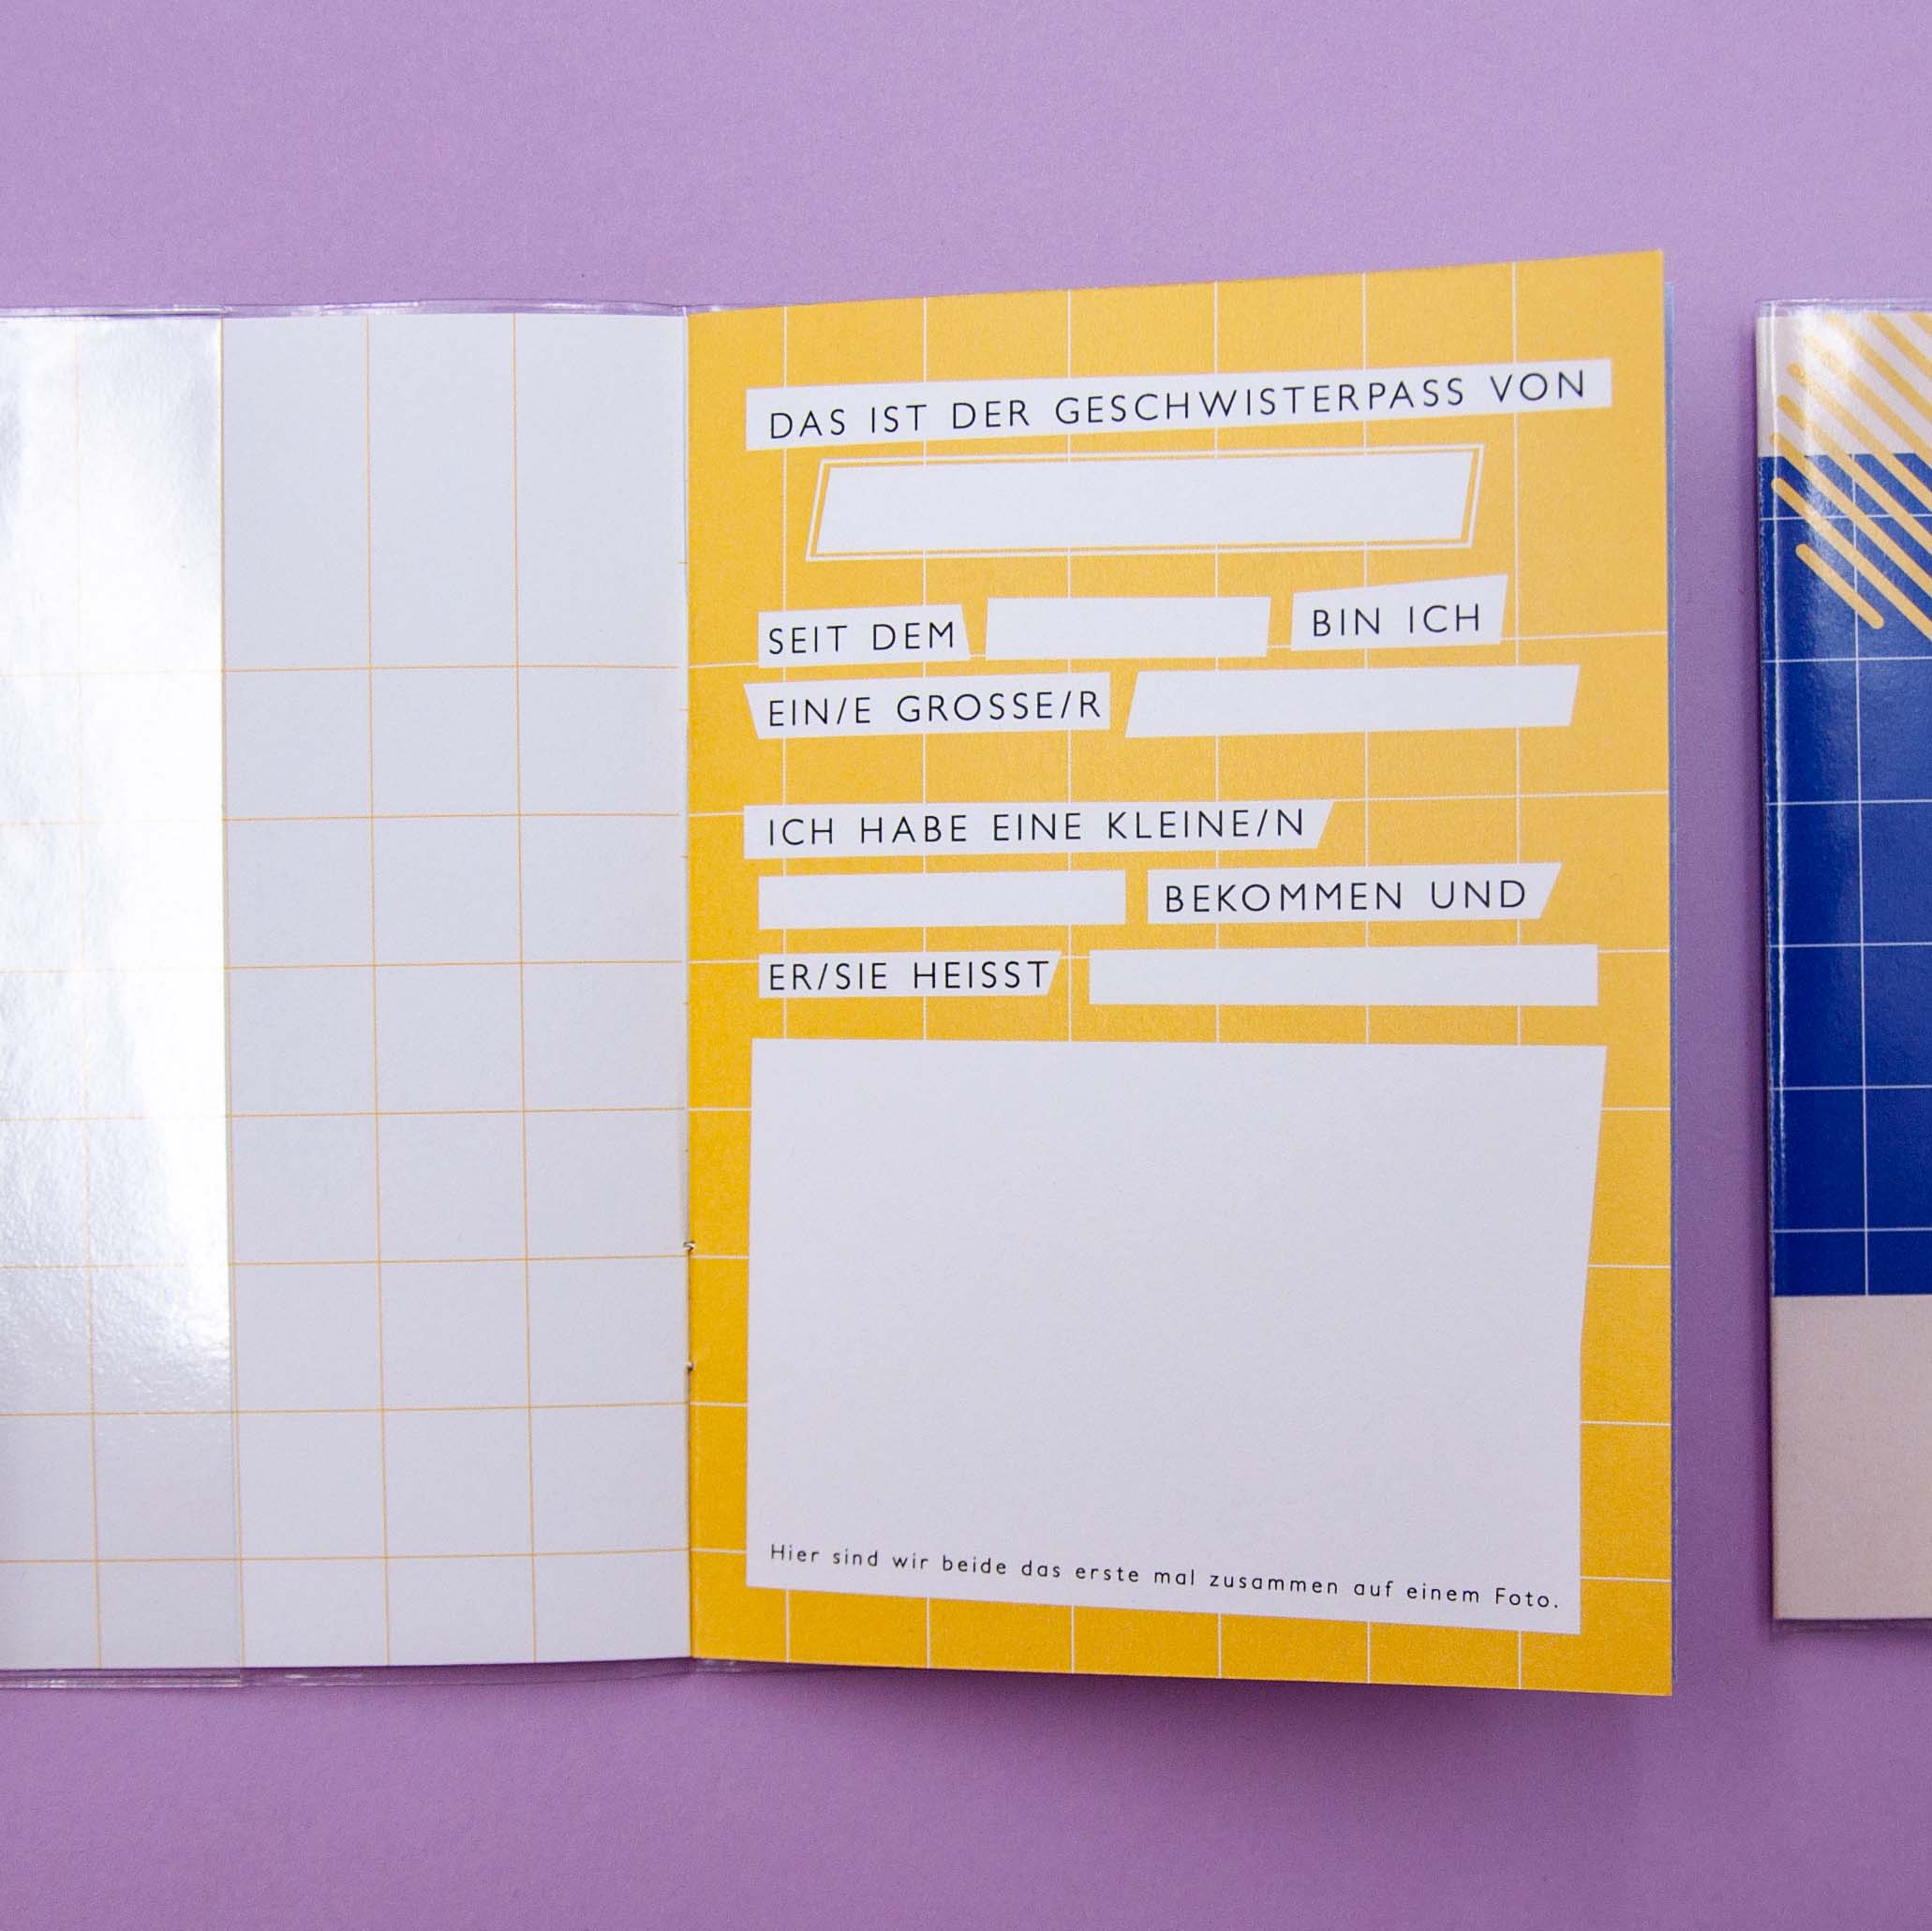 DAS IST DER GESCHWISTERPASS VON
SEIT DEM BIN ICH
EIN/E GROSSE/R
ICH HABE EINE KLEINE/N
BEKOMMEN UND
ER/SIE HEISST
Hier sind wir beide das erste mal zusammen auf einem Foto.